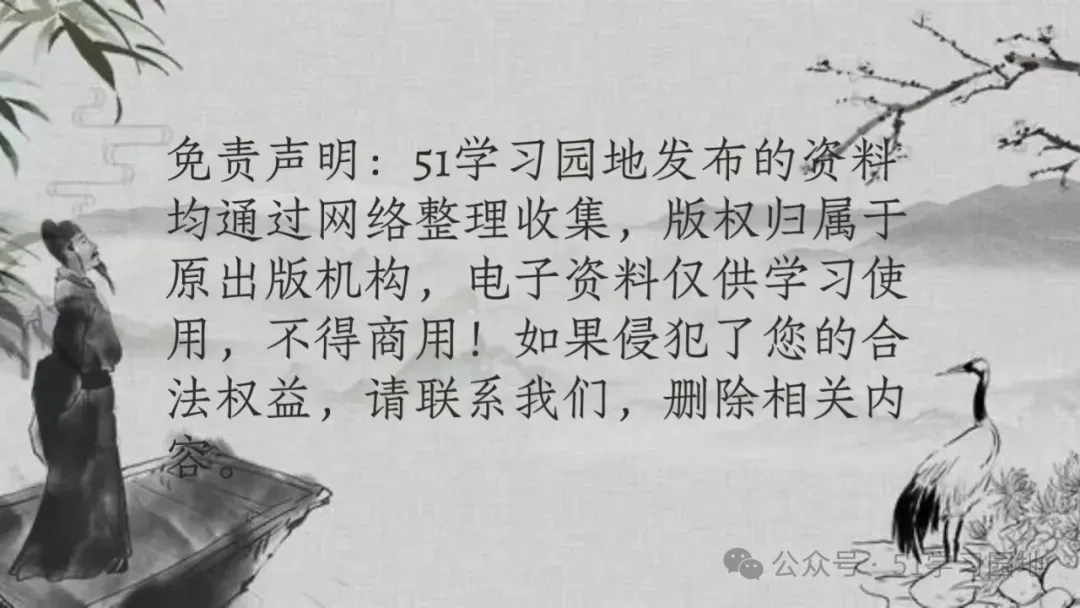 免责声明：51学习园地发布的资料
均通过网络整理收集，版权归属于
原出版机构，电子资料仅供学习使
用，不得商用！如果侵犯了您的合
法权益，请联系我们，删除相关内
容。
公众号 · 51学习园地